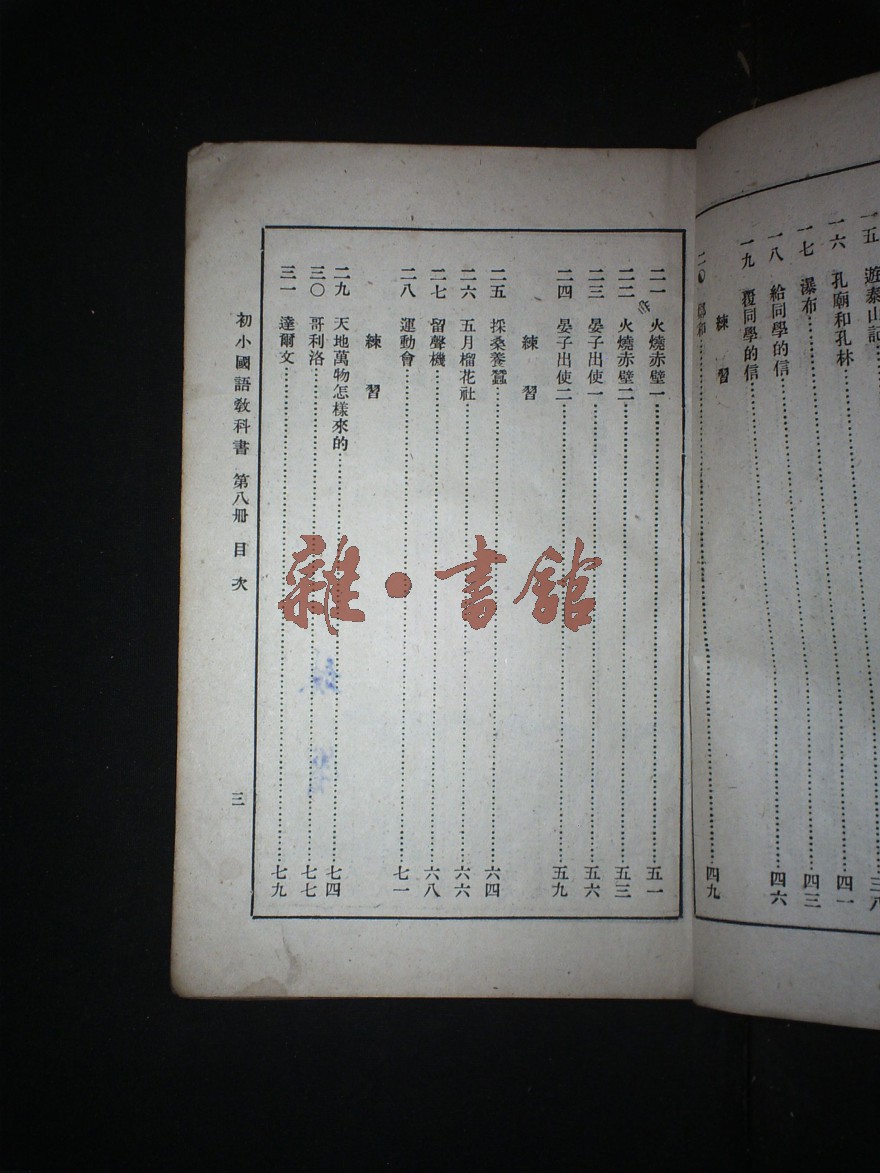 一五 遊泰山記 三八
一六 孔廟和孔林 四一
一七 瀑布 四三
一八 給同學的信 四六
一九 覆同學的信
練習
二〇 鄭和 四九
二一 火燒赤壁一 五一
二二 火燒赤壁二 五三
二三 晏子出使一 五六
二四 晏子出使二 五九
練習
二五 採桑養蠶 六四
二六 五月榴花社 六六
二七 留聲機 六八
二八 運動會 七一
練習
二九 天地萬物怎樣來的 七四
三〇 哥利洛 七七
三一 達爾文 七九
初小國語教科書 第八冊 目次 三
雜·書館